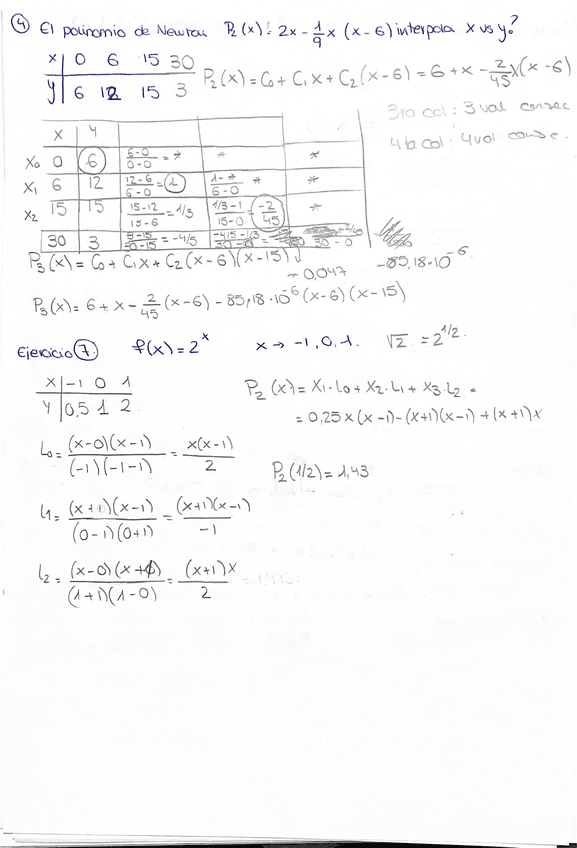 ④ El polinomio de Newton P₂(x) = 2x - 1/9 x (x-6) interpola x vs y?
x | 0 6 15 30
y | 6 12 15 3
P₂(x) = C₀ + C₁x + C₂(x-6) = 6 + x - 2/45 x(x-6)
3ra col: 3 val consec
4ta col: 4 val consec.
x y
x₀ 0 6 (6-0)/(0-0) = * * *
x₁ 6 12 (12-6)/(6-0) = 1 (1-*)/(6-0) * *
x₂ 15 15 (15-12)/(15-6) = 1/3 (1/3-1)/(15-0) = -2/45 *
30 3 = -4/5 -4/5-1/3 30-0
-85,18·10⁻⁶
P₃(x) = C₀ + C₁x + C₂(x-6)(x-15)
-0,047
P₃(x) = 6 + x - 2/45 (x-6) - 85,18·10⁻⁶ (x-6)(x-15)
Ejercicio ⑦. f(x) = 2ˣ x → -1, 0, 1. √2 = 2^(1/2).
x | -1 0 1
y | 0,5 1 2
P₂(x) = x₁·L₀ + x₂·L₁ + x₃·L₂ =
= 0,25x(x-1) - (x+1)(x-1) + (x+1)x
L₀ = (x-0)(x-1)/(-1)(-1-1) = x(x-1)/2
P₂(1/2) = 1,43
L₁ = (x+1)(x-1)/(0-1)(0+1) = (x+1)(x-1)/-1
L₂ = (x-0)(x+1)/(1+1)(1-0) = (x+1)x/2